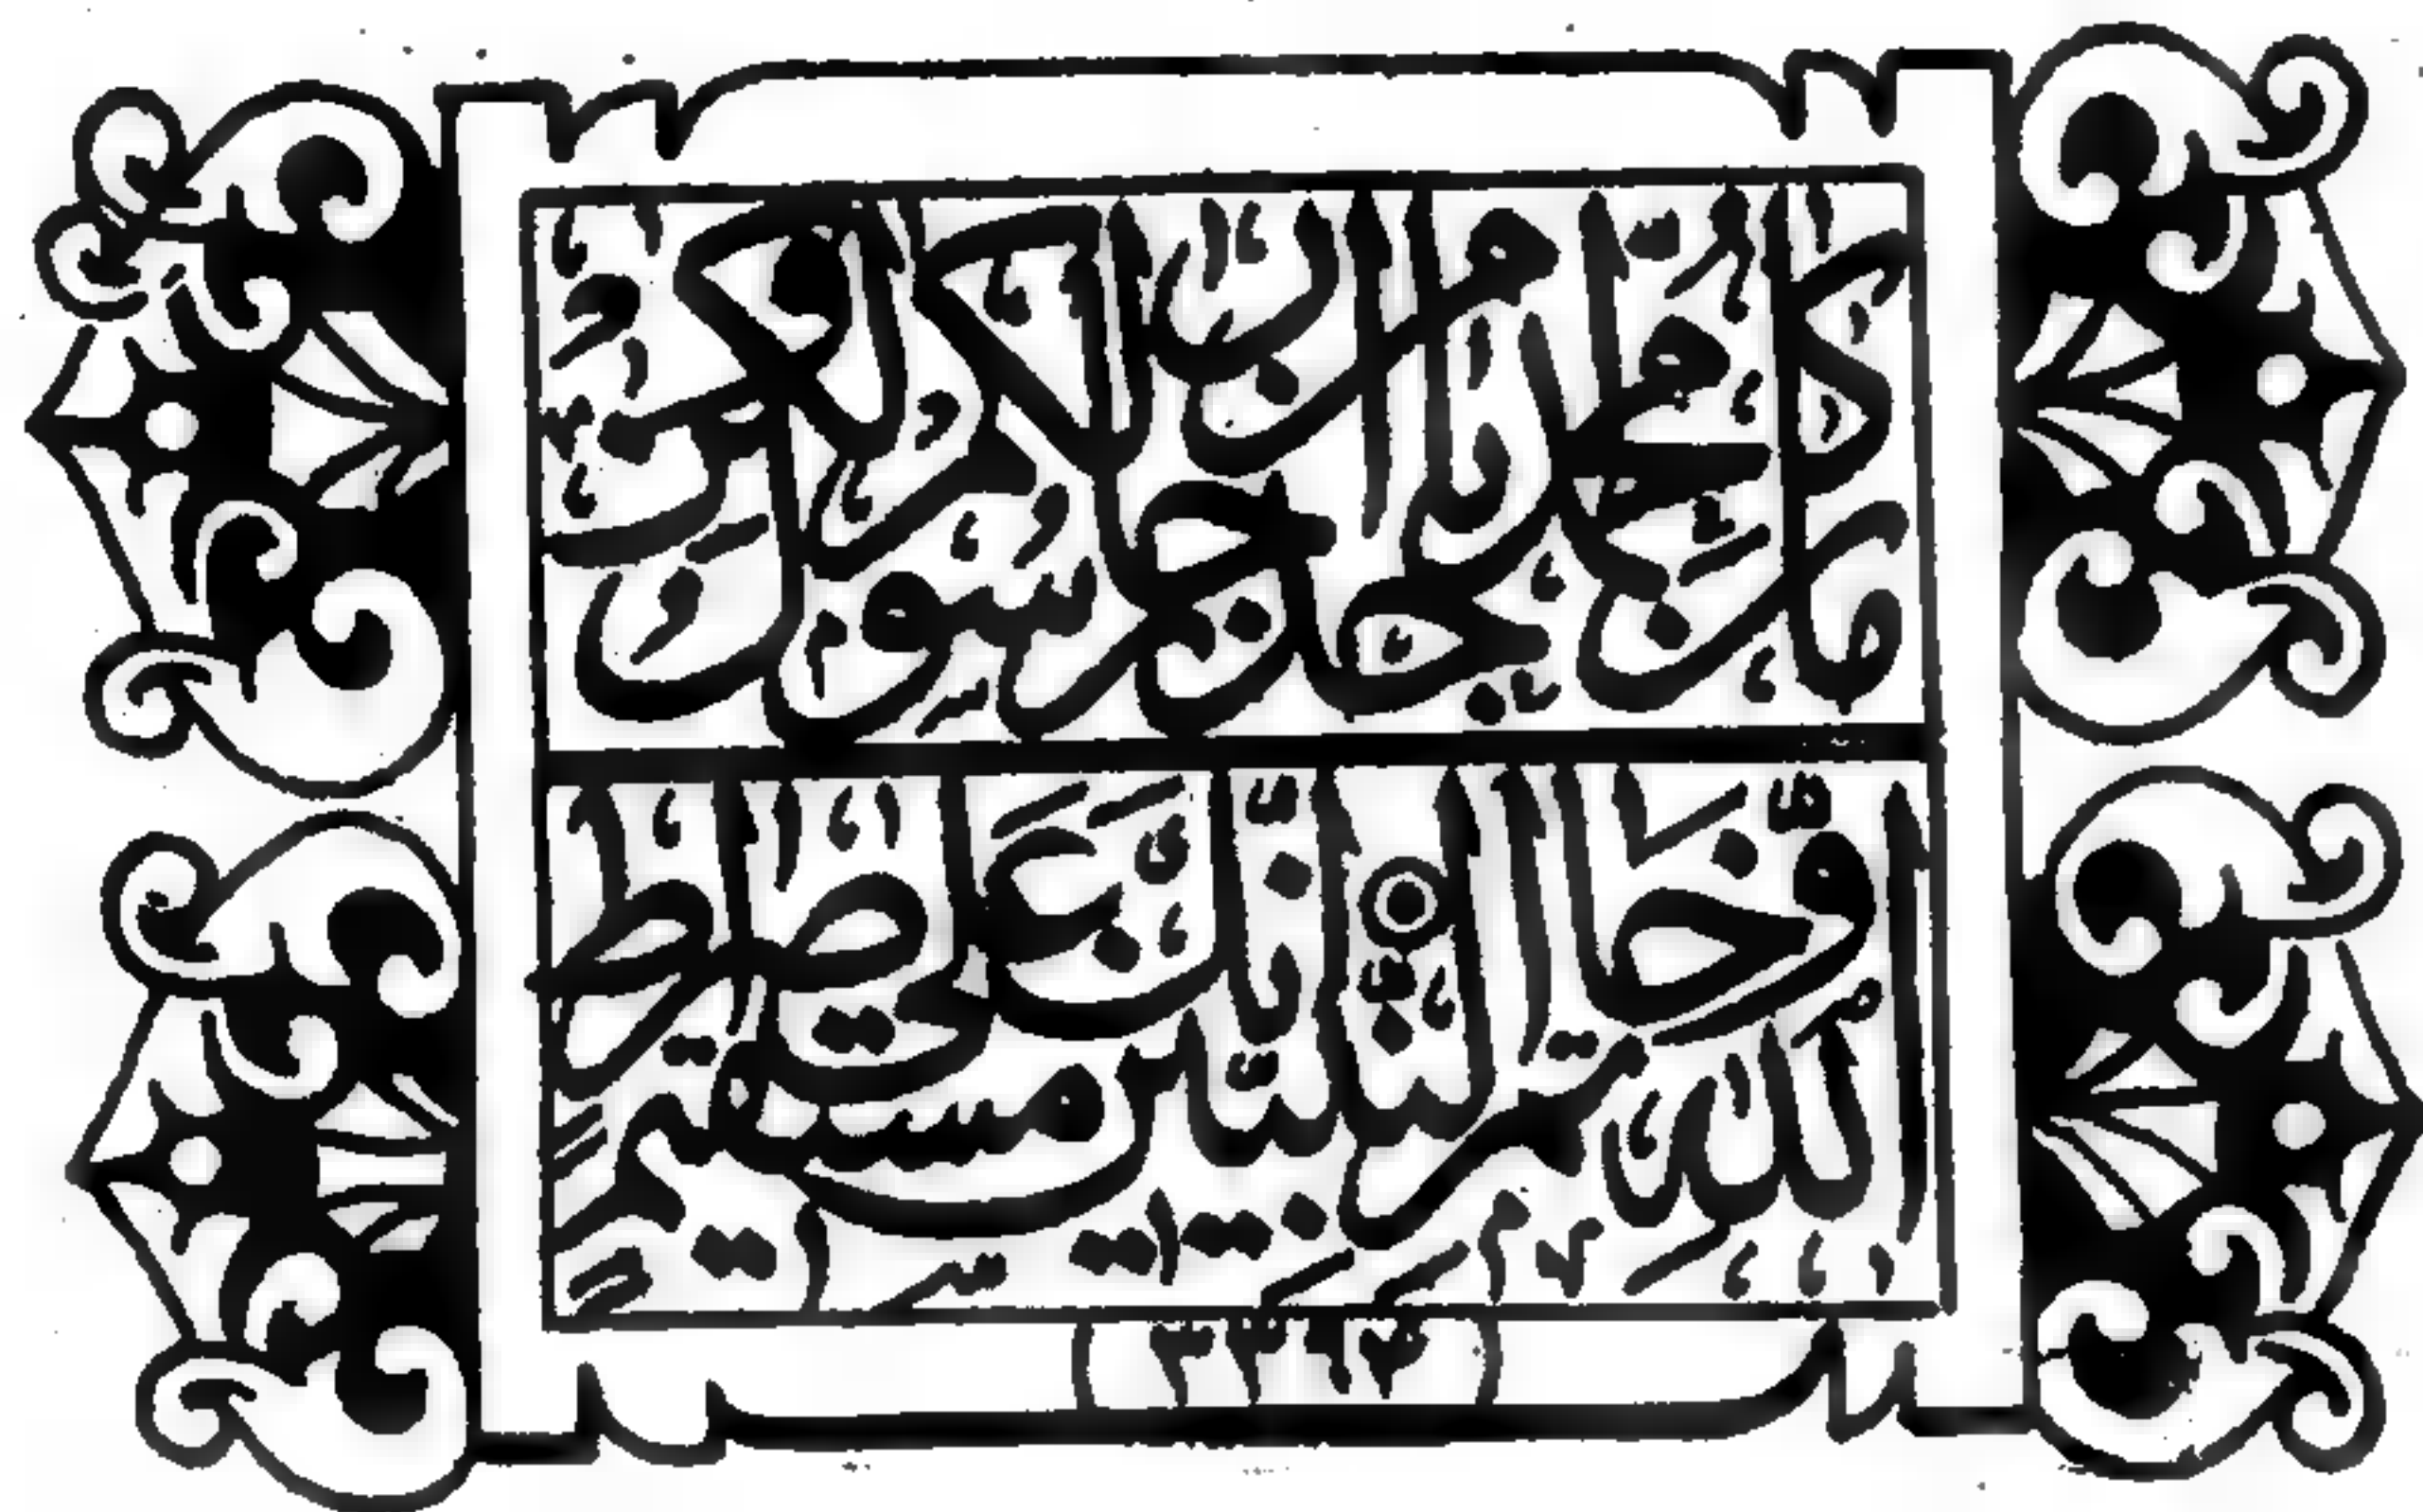 ما كان محمد ابا احد من رجالكم ولكن رسول
الله وخاتم النبيين على صراط مستقيم